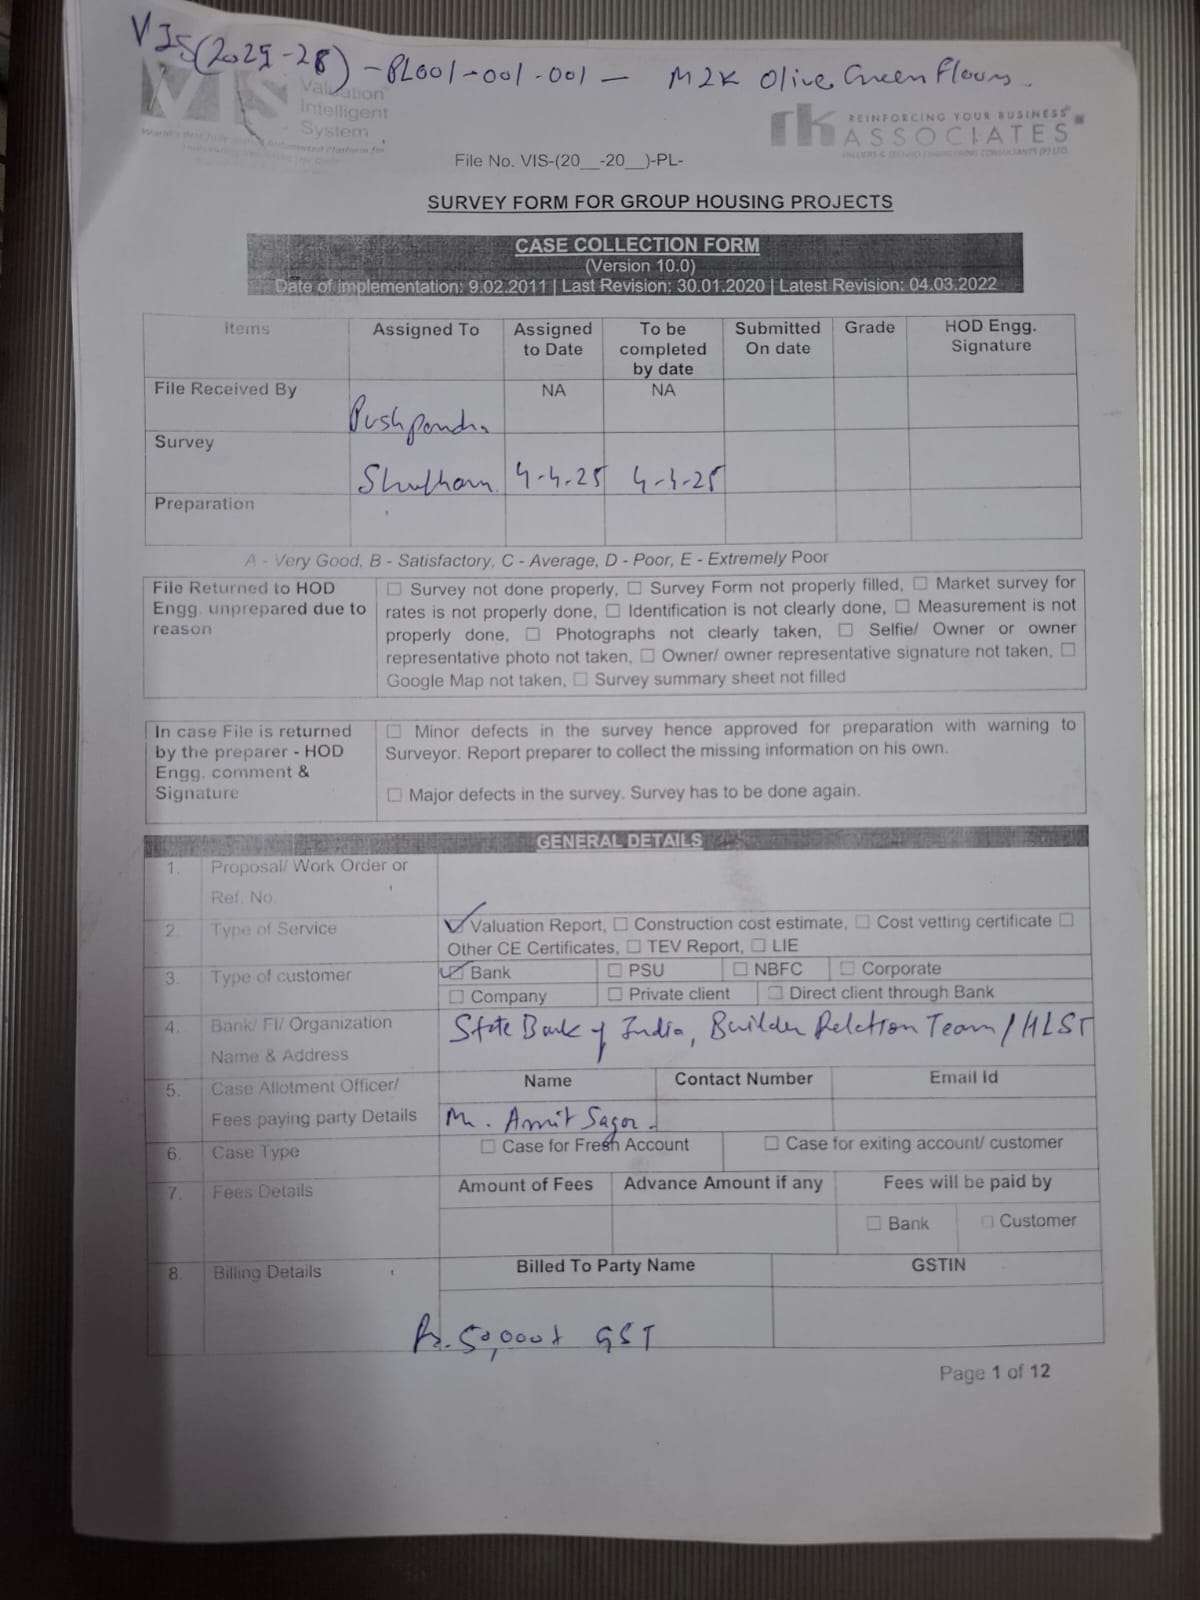 VIS(2025-28) - PL001-001-001 - M2K Olive Green Floors.
VIS Valuation
Intelligent
System
rk REINFORCING YOUR BUSINESS
ASSOCIATES
File No. VIS-(20__-20__)-PL-
SURVEY FORM FOR GROUP HOUSING PROJECTS
CASE COLLECTION FORM
(Version 10.0)
Date of implementation: 9.02.2011 | Last Revision: 30.01.2020 | Latest Revision: 04.03.2022
Items Assigned To Assigned to Date To be completed by date Submitted On date Grade HOD Engg. Signature
File Received By NA NA
Pushpendra
Survey
Shubham 4-4-25 4-4-25
Preparation
A - Very Good, B - Satisfactory, C - Average, D - Poor, E - Extremely Poor
File Returned to HOD Engg. unprepared due to reason
☐ Survey not done properly, ☐ Survey Form not properly filled, ☐ Market survey for
rates is not properly done, ☐ Identification is not clearly done, ☐ Measurement is not
properly done, ☐ Photographs not clearly taken, ☐ Selfie/ Owner or owner
representative photo not taken, ☐ Owner/ owner representative signature not taken, ☐
Google Map not taken, ☐ Survey summary sheet not filled
In case File is returned by the preparer - HOD Engg. comment & Signature
☐ Minor defects in the survey hence approved for preparation with warning to
Surveyor. Report preparer to collect the missing information on his own.
☐ Major defects in the survey. Survey has to be done again.
GENERAL DETAILS
1. Proposal/ Work Order or
Ref. No.
2. Type of Service ☑ Valuation Report, ☐ Construction cost estimate, ☐ Cost vetting certificate ☐
Other CE Certificates, ☐ TEV Report, ☐ LIE
3. Type of customer ☑ Bank ☐ PSU ☐ NBFC ☐ Corporate
☐ Company ☐ Private client ☐ Direct client through Bank
4. Bank/ FI/ Organization
Name & Address
State Bank of India, Builder Relation Team / HLST
5. Case Allotment Officer/
Fees paying party Details
Name Contact Number Email Id
Mr. Amit Sagar.
6. Case Type ☐ Case for Fresh Account ☐ Case for exiting account/ customer
7. Fees Details Amount of Fees Advance Amount if any Fees will be paid by
☐ Bank ☐ Customer
8. Billing Details Billed To Party Name GSTIN
Rs. 50,000+ GST
Page 1 of 12